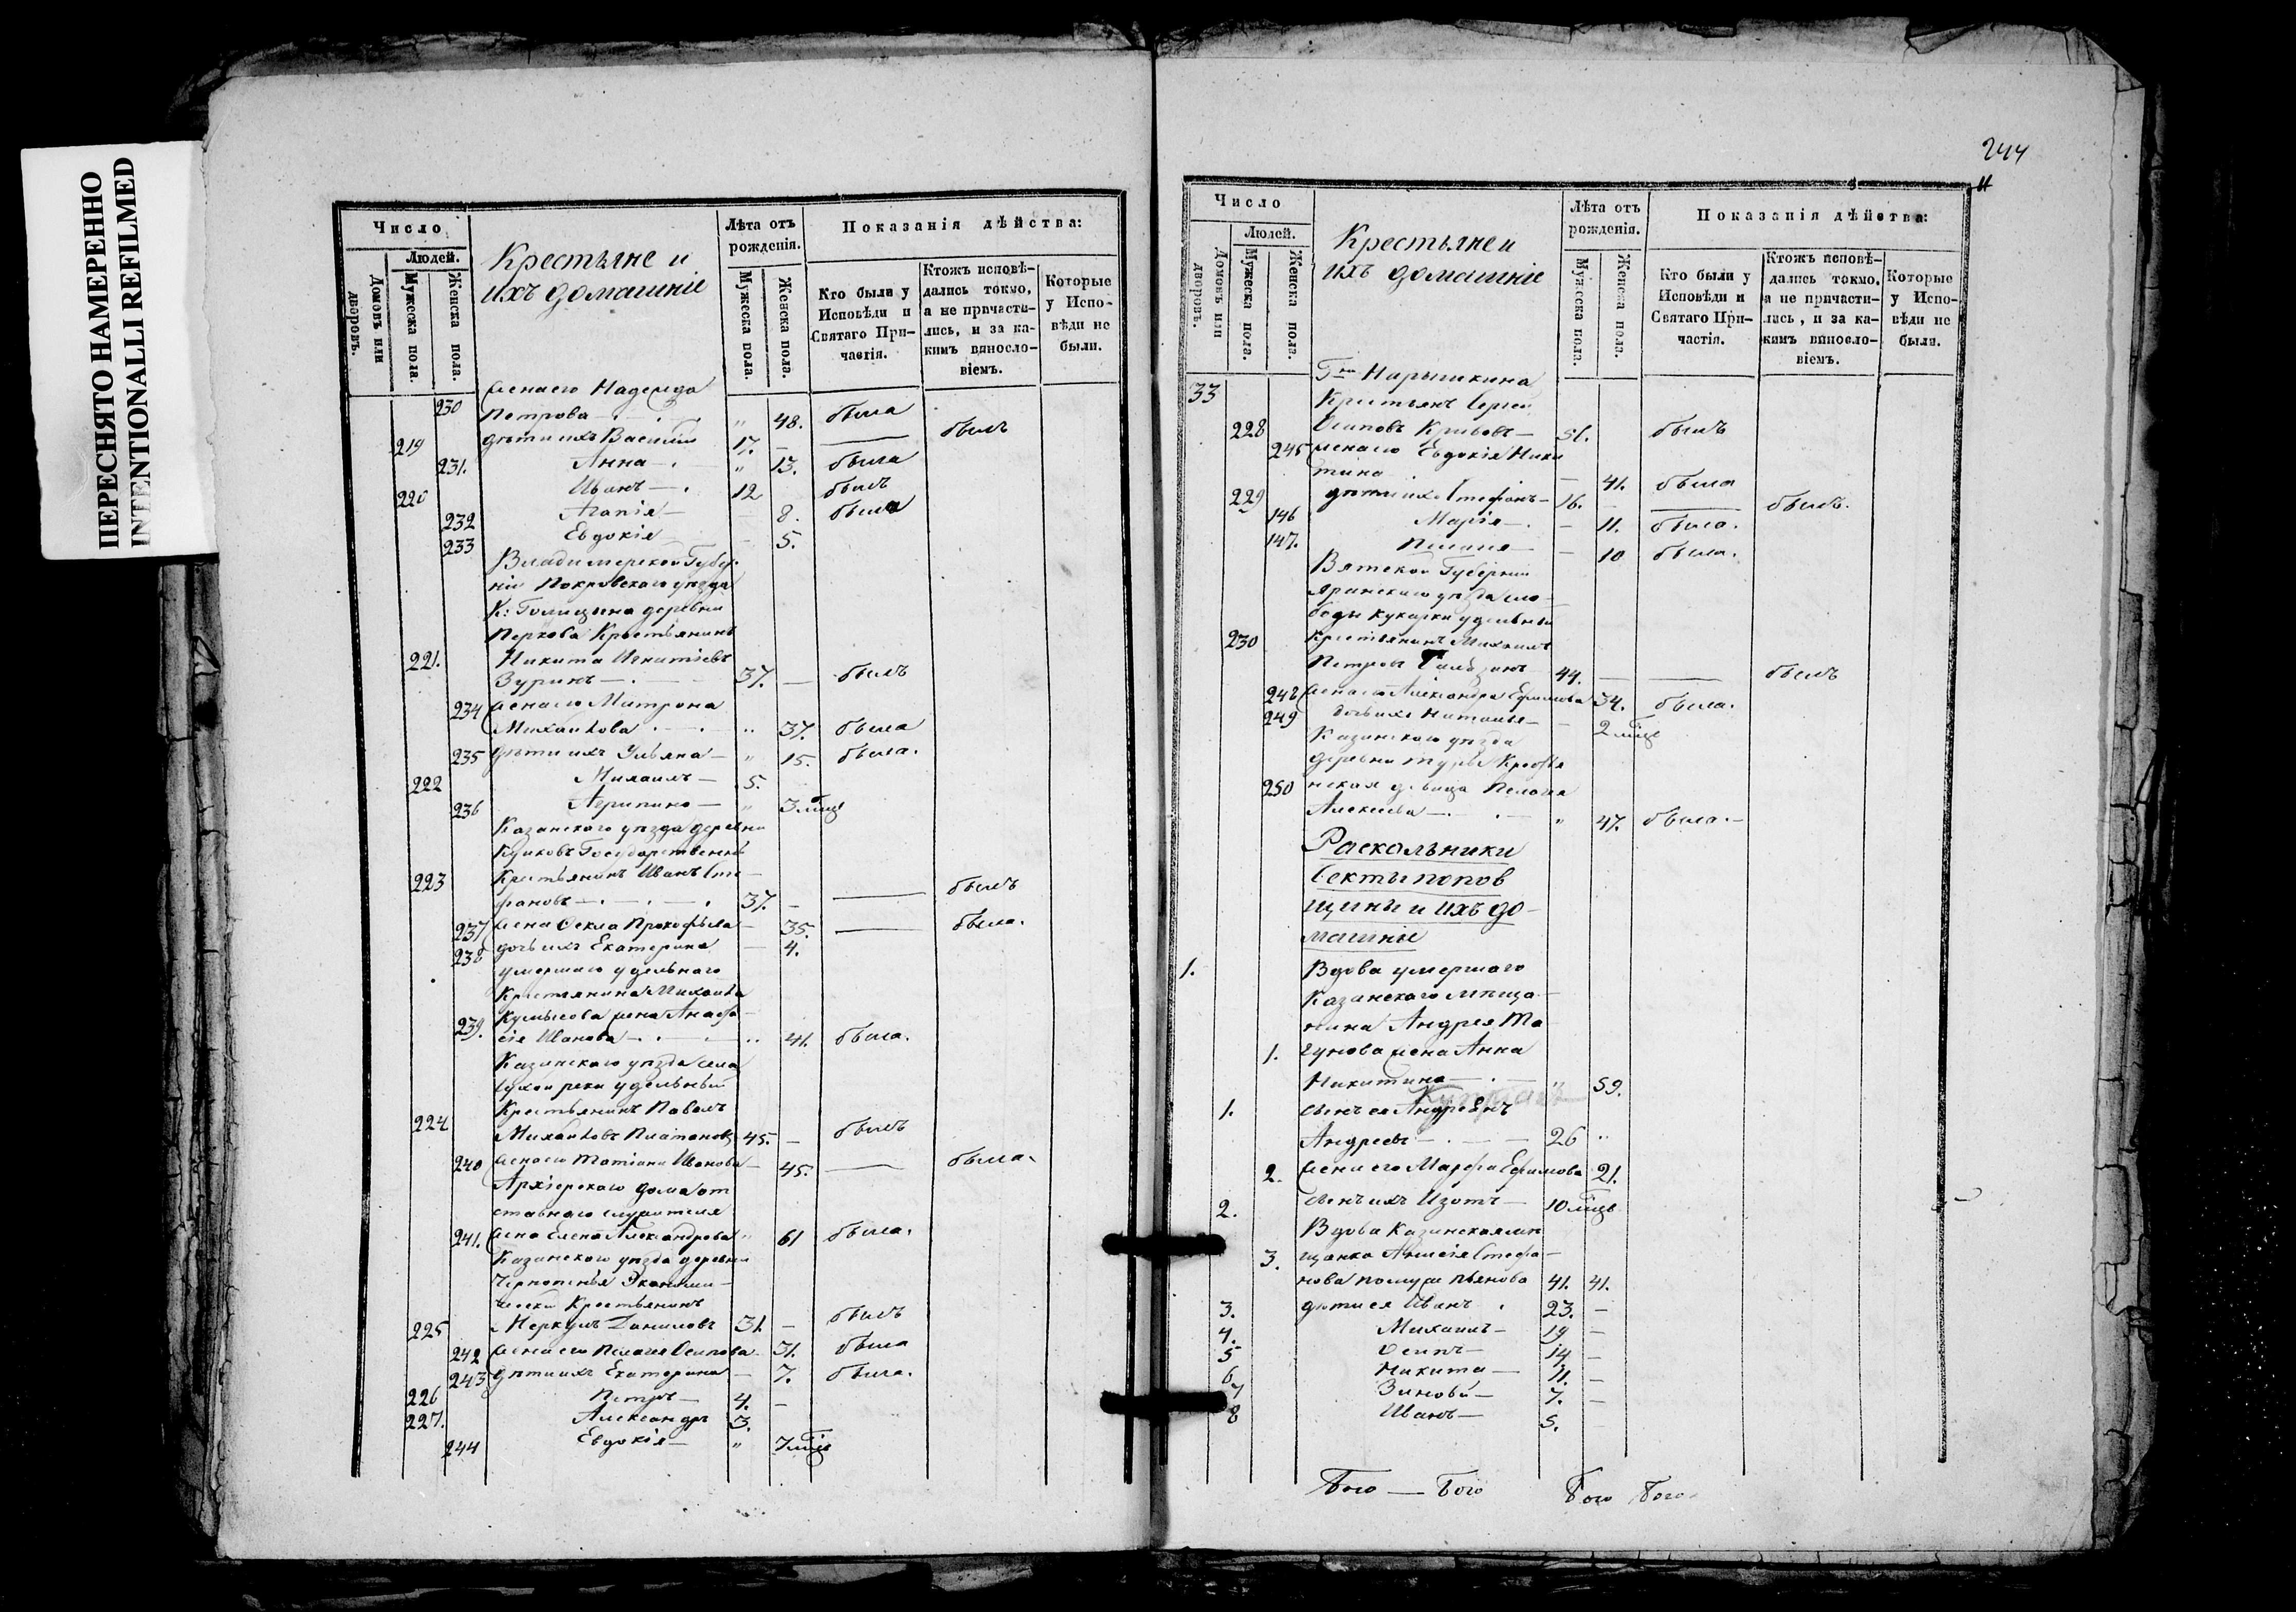 ПЕРЕСНЯТО НАМЕРЕННО
INTENTIONALLI REFILMED
Число
Людей.
Домовъ или дворовъ.
Мужеска пола.
Женска пола.
Крестьяне и
ихъ домашніе
Лѣта отъ
рожденія.
Мужеска пола.
Женска пола.
Показанія дѣйства:
Кто были у
Исповѣди и
Святаго При-
частія.
Ктожъ исповѣ-
дались токмо,
а не причасти-
лись, и за ка-
кимъ виносло-
віемъ.
Которые
у Испо-
вѣди не
были.
жена его Надежда
230 Петрова " 48. была
219 дѣти ихъ Василій 17. — былъ
231. Анна " 13. была
220 Иванъ 12 былъ
232 Агапія 8. была
233 Евдокія 5.
Владимирской Губер
ніи Покровскаго уѣзда
К: Голицына деревни
Перхова Крестьянинъ
221. Никита Игнатіевъ
Зуринъ 37. — былъ
234 жена его Матрона
Михайлова " 37. была
235 дѣти ихъ Ульяна " 15. была.
222 Михаилъ 5.
236 Агрипина " 3 мѣсц
Казанскаго уѣзда деревни
Государственный
223 Крестьянинъ Иванъ Сте
фановъ 37. — былъ
237 жена Фекла Прокофьева — 35. — была.
238 дочь ихъ Екатерина — 4.
умершаго удельнаго
Крестьянина Михаила
239. жена Анаста
сія Иванова " 41. была.
Казанскаго уѣзда села
Сухой реки удельный
Крестьянинъ Павелъ
224 Михайловъ Платоновъ 45. — былъ
240 жена его Татіана Иванова — 45. — была.
Архіерейскаго дома от
ставнаго служителя
241. жена Елена Александрова " 61 была.
Казанскаго уѣзда деревни
Чернопенья Экономи-
ческій Крестьянинъ
225 Меркулъ Даниловъ 31. — былъ
242 жена его Пелагея Осипова 31. была
243 дѣти ихъ Екатерина — 7. была.
226 Петръ 4. —
227. Александръ 3.
244 Евдокія " 7 мѣсц
244
Число
Людей.
Домовъ или дворовъ.
Мужеска пола.
Женска пола.
Крестьяне и
ихъ домашніе
Лѣта отъ
рожденія.
Мужеска пола.
Женска пола.
Показанія дѣйства:
Кто были у
Исповѣди и
Святаго При-
частія.
Ктожъ исповѣ-
дались токмо,
а не причасти-
лись, и за ка-
кимъ виносло-
віемъ.
Которые
у Испо-
вѣди не
были.
Г-на Нарышкина
33 Крестьянъ Сергей
228 Осиповъ 51. былъ
245 жена его Евдокія Ники
тина — 41. была
229 дѣти ихъ Стефанъ 16. — былъ.
146 Марія — 11. была.
147. Пелагея — 10 была.
Вятской Губерніи
Яранскаго уѣзда сло
боды Кукарки удельный
230 Крестьянинъ Михаилъ
Петровъ 44. — былъ
248 жена его Александра Ефимова 34. была.
249 дочь ихъ Наталья — 2 мѣсц
Казанскаго уѣзда
деревни Крестья
250 нская девица Пелагея
Алексеева " 47. была.
Раскольники
Секты попов
щины и ихъ до-
машніе
1. Вдова умершаго
Казанскаго мѣща-
нина Андрея
1. жена Анна
Никитина " 59.
1. сынъ ея Андреянъ
Андреевъ 26 "
2. жена его Марфа Ефимова 21.
2. сынъ ихъ Изотъ 10 мѣсц
Вдова Казанская мѣ
3. щанка Анисія Стефа-
нова по мужѣ Пьянова 41. 41.
3. дѣти ея Иванъ 23. —
4. Михаилъ 19 —
5 Осипъ 14 —
6 Никита 11. —
7 Зиновій 7. —
8 Иванъ 5. —